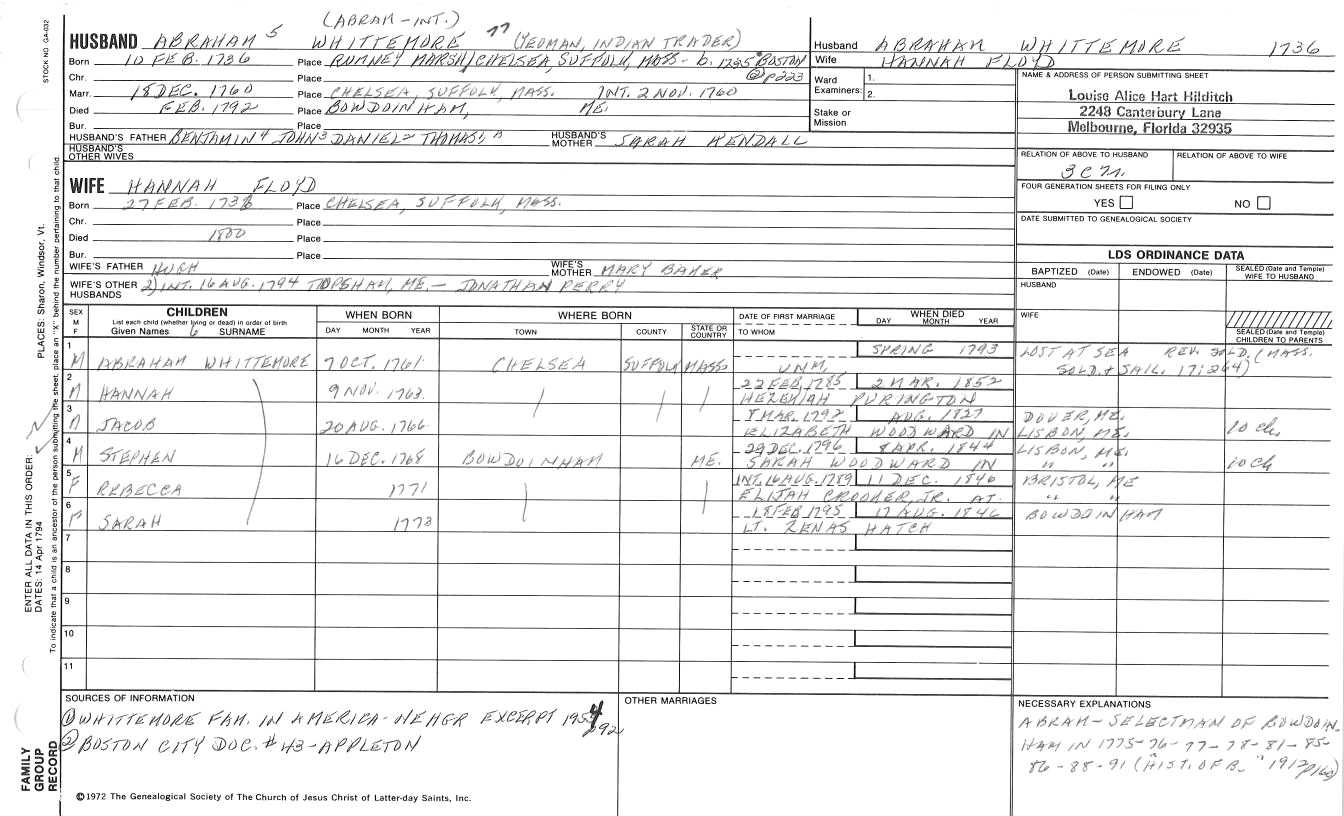 STOCK NO. GA-032
(ABRAM-INT.)
HUSBAND ABRAHAM 5 WHITTEMORE 77 (YEOMAN, INDIAN TRADER)
Born 10 FEB. 1736 Place RUMNEY MARSH/CHELSEA, SUFFOLK, MASS - b. 1735 BOSTON
② p223
Chr. Place
Marr. 18 DEC. 1760 Place CHELSEA, SUFFOLK, MASS. INT. 2 NOV. 1760
Died FEB. 1792 Place BOWDOINHAM, ME.
Bur. Place
HUSBAND'S FATHER BENJAMIN 4 JOHN 3 DANIEL 2 THOMAS 1, HUSBAND'S MOTHER SARAH KENDALL
HUSBAND'S OTHER WIVES
Husband ABRAHAM WHITTEMORE 1736
Wife HANNAH FLOYD
Ward Examiners: 1.
2.
Stake or Mission
NAME & ADDRESS OF PERSON SUBMITTING SHEET
Louise Alice Hart Hilditch
2248 Canterbury Lane
Melbourne, Florida 32935
RELATION OF ABOVE TO HUSBAND RELATION OF ABOVE TO WIFE
3C
FOUR GENERATION SHEETS FOR FILING ONLY
YES NO
DATE SUBMITTED TO GENEALOGICAL SOCIETY
WIFE HANNAH FLOYD
Born 27 FEB. 1738 Place CHELSEA, SUFFOLK, MASS.
Chr. Place
Died 1800 Place
Bur. Place
WIFE'S FATHER HUGH WIFE'S MOTHER MARY BAKER
WIFE'S OTHER HUSBANDS 2) INT. 16 AUG. 1794 TOPSHAM, ME. - JONATHAN PERRY
LDS ORDINANCE DATA
BAPTIZED (Date) ENDOWED (Date) SEALED (Date and Temple) WIFE TO HUSBAND
HUSBAND
WIFE
SEALED (Date and Temple) CHILDREN TO PARENTS
SEX M F CHILDREN WHEN BORN WHERE BORN DATE OF FIRST MARRIAGE WHEN DIED
List each child (whether living or dead) in order of birth
Given Names 6 SURNAME DAY MONTH YEAR TOWN COUNTY STATE OR COUNTRY TO WHOM DAY MONTH YEAR
1 M ABRAHAM WHITTEMORE 7 OCT. 1761 CHELSEA SUFFOLK MASS UNM, SPRING 1793 LOST AT SEA REV. SOLD. (MASS. SOLD. & SAIL. 17:264)
2 HANNAH 9 NOV. 1763 22 FEB. 1785 2 MAR. 1852
HEZEKIAH PURINGTON
3 JACOB 20 AUG. 1766 8 MAR. 1792 AUG. 1827 DOVER, ME.
ELIZABETH WOODWARD IN LISBON, ME. 10 ch.
4 M STEPHEN 16 DEC. 1768 BOWDOINHAM ME. 29 DEC. 1796 8 APR. 1844 LISBON, ME.
SARAH WOODWARD IN " " 10 ch
5 F REBECCA 1771 INT. 16 AUG. 1789 11 DEC. 1846 BRISTOL, ME
ELIJAH CROOKER, JR. AT. " "
6 F SARAH 1773 18 FEB 1795 17 AUG. 1846 BOWDOINHAM
LT. ZENAS HATCH
7
8
9
10
11
SOURCES OF INFORMATION
① WHITTEMORE FAM. IN AMERICA-NEHGR EXCERPT 1954
p92
② BOSTON CITY DOC. #43-APPLETON
OTHER MARRIAGES
NECESSARY EXPLANATIONS
ABRAM - SELECTMAN OF BOWDOIN-
HAM IN 1775-76-77-78-81-85-
86-88-91 ("HIST. OF B." 1912 p160)
©1972 The Genealogical Society of The Church of Jesus Christ of Latter-day Saints, Inc.
FAMILY GROUP RECORD
ENTER ALL DATA IN THIS ORDER:
DATES: 14 Apr 1794
PLACES: Sharon, Windsor, Vt.
To indicate that a child is an ancestor of the person submitting the sheet, place an "X" behind the number pertaining to that child.